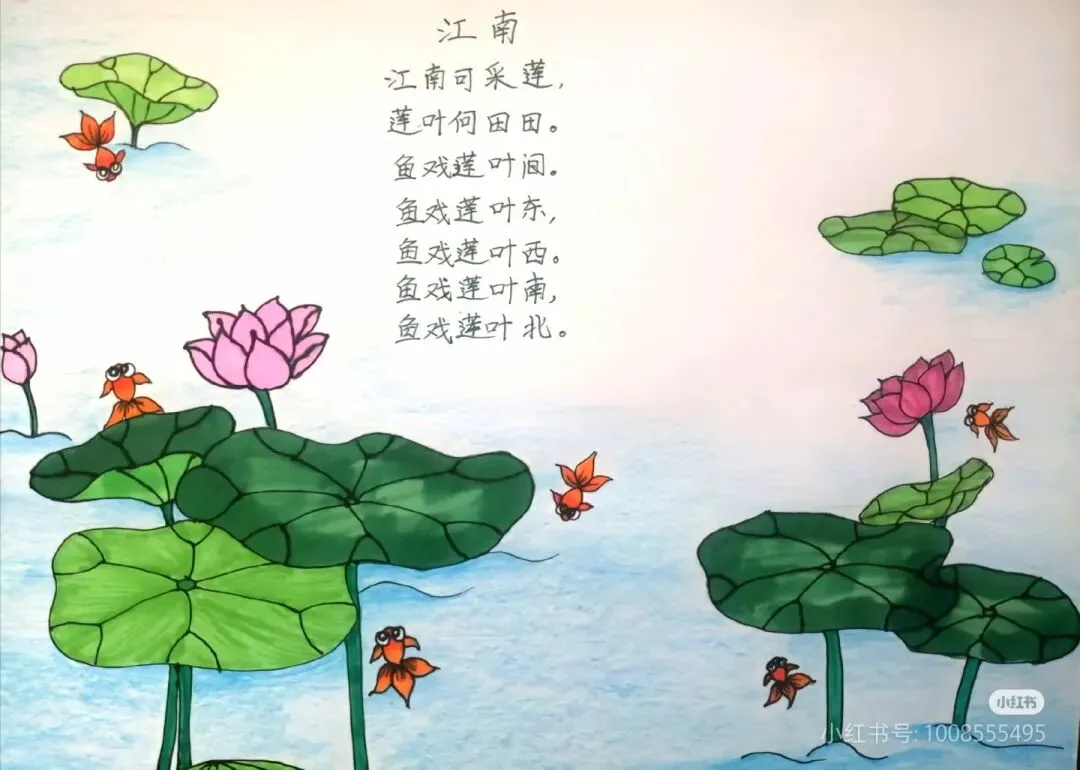 江南
江南可采莲，
莲叶何田田。
鱼戏莲叶间。
鱼戏莲叶东，
鱼戏莲叶西。
鱼戏莲叶南，
鱼戏莲叶北。
小红书
小红书号: 1008555495